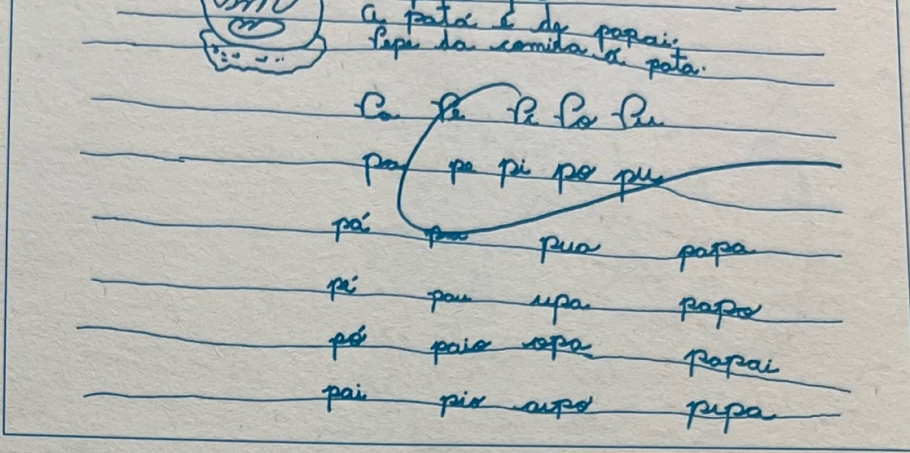 A pata é do papai.
Pepe da comida a pata.
Pa Pe Pi Po Pu
pa pe pi po pu
pá pua papa
pé pau upa papo
pó paio opa papai
pai pio pipa